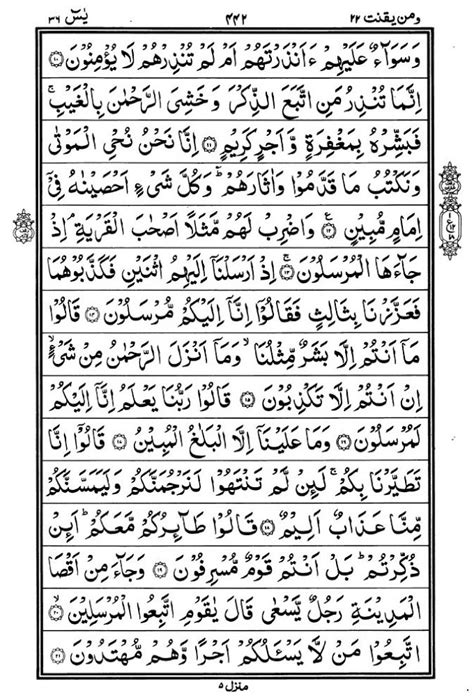 ومن يقنت ٢٢ ٤٤٢ يٰسٓ ٣٦
وَسَوَآءٌ عَلَيْهِمْ ءَاَنْذَرْتَهُمْ اَمْ لَمْ تُنْذِرْهُمْ لَا يُؤْمِنُوْنَ ۝١٠
اِنَّمَا تُنْذِرُ مَنِ اتَّبَعَ الذِّكْرَ وَخَشِيَ الرَّحْمٰنَ بِالْغَيْبِ ۚ
فَبَشِّرْهُ بِمَغْفِرَةٍ وَّاَجْرٍ كَرِيْمٍ ۝١١ اِنَّا نَحْنُ نُحْيِ الْمَوْتٰى
وَنَكْتُبُ مَا قَدَّمُوْا وَاٰثَارَهُمْ ؕ وَكُلَّ شَيْءٍ اَحْصَيْنٰهُ فِيْٓ
اِمَامٍ مُّبِيْنٍ ۝١٢ وَاضْرِبْ لَهُمْ مَّثَلًا اَصْحٰبَ الْقَرْيَةِ ۘ اِذْ
جَآءَهَا الْمُرْسَلُوْنَ ۝١٣ اِذْ اَرْسَلْنَآ اِلَيْهِمُ اثْنَيْنِ فَكَذَّبُوْهُمَا
فَعَزَّزْنَا بِثَالِثٍ فَقَالُوْٓا اِنَّآ اِلَيْكُمْ مُّرْسَلُوْنَ ۝١٤ قَالُوْا
مَآ اَنْتُمْ اِلَّا بَشَرٌ مِّثْلُنَا ۙ وَمَآ اَنْزَلَ الرَّحْمٰنُ مِنْ شَيْءٍ ۙ
اِنْ اَنْتُمْ اِلَّا تَكْذِبُوْنَ ۝١٥ قَالُوْا رَبُّنَا يَعْلَمُ اِنَّآ اِلَيْكُمْ
لَمُرْسَلُوْنَ ۝١٦ وَمَا عَلَيْنَآ اِلَّا الْبَلٰغُ الْمُبِيْنُ ۝١٧ قَالُوْٓا اِنَّا
تَطَيَّرْنَا بِكُمْ ۚ لَئِنْ لَّمْ تَنْتَهُوْا لَنَرْجُمَنَّكُمْ وَلَيَمَسَّنَّكُمْ
مِّنَّا عَذَابٌ اَلِيْمٌ ۝١٨ قَالُوْا طَآئِرُكُمْ مَّعَكُمْ ؕ اَئِنْ
ذُكِّرْتُمْ ؕ بَلْ اَنْتُمْ قَوْمٌ مُّسْرِفُوْنَ ۝١٩ وَجَآءَ مِنْ اَقْصَا
الْمَدِيْنَةِ رَجُلٌ يَّسْعٰى قَالَ يٰقَوْمِ اتَّبِعُوا الْمُرْسَلِيْنَ ۝٢٠
اتَّبِعُوْا مَنْ لَّا يَسْئَلُكُمْ اَجْرًا وَّهُمْ مُّهْتَدُوْنَ ۝٢١
منزل ٥